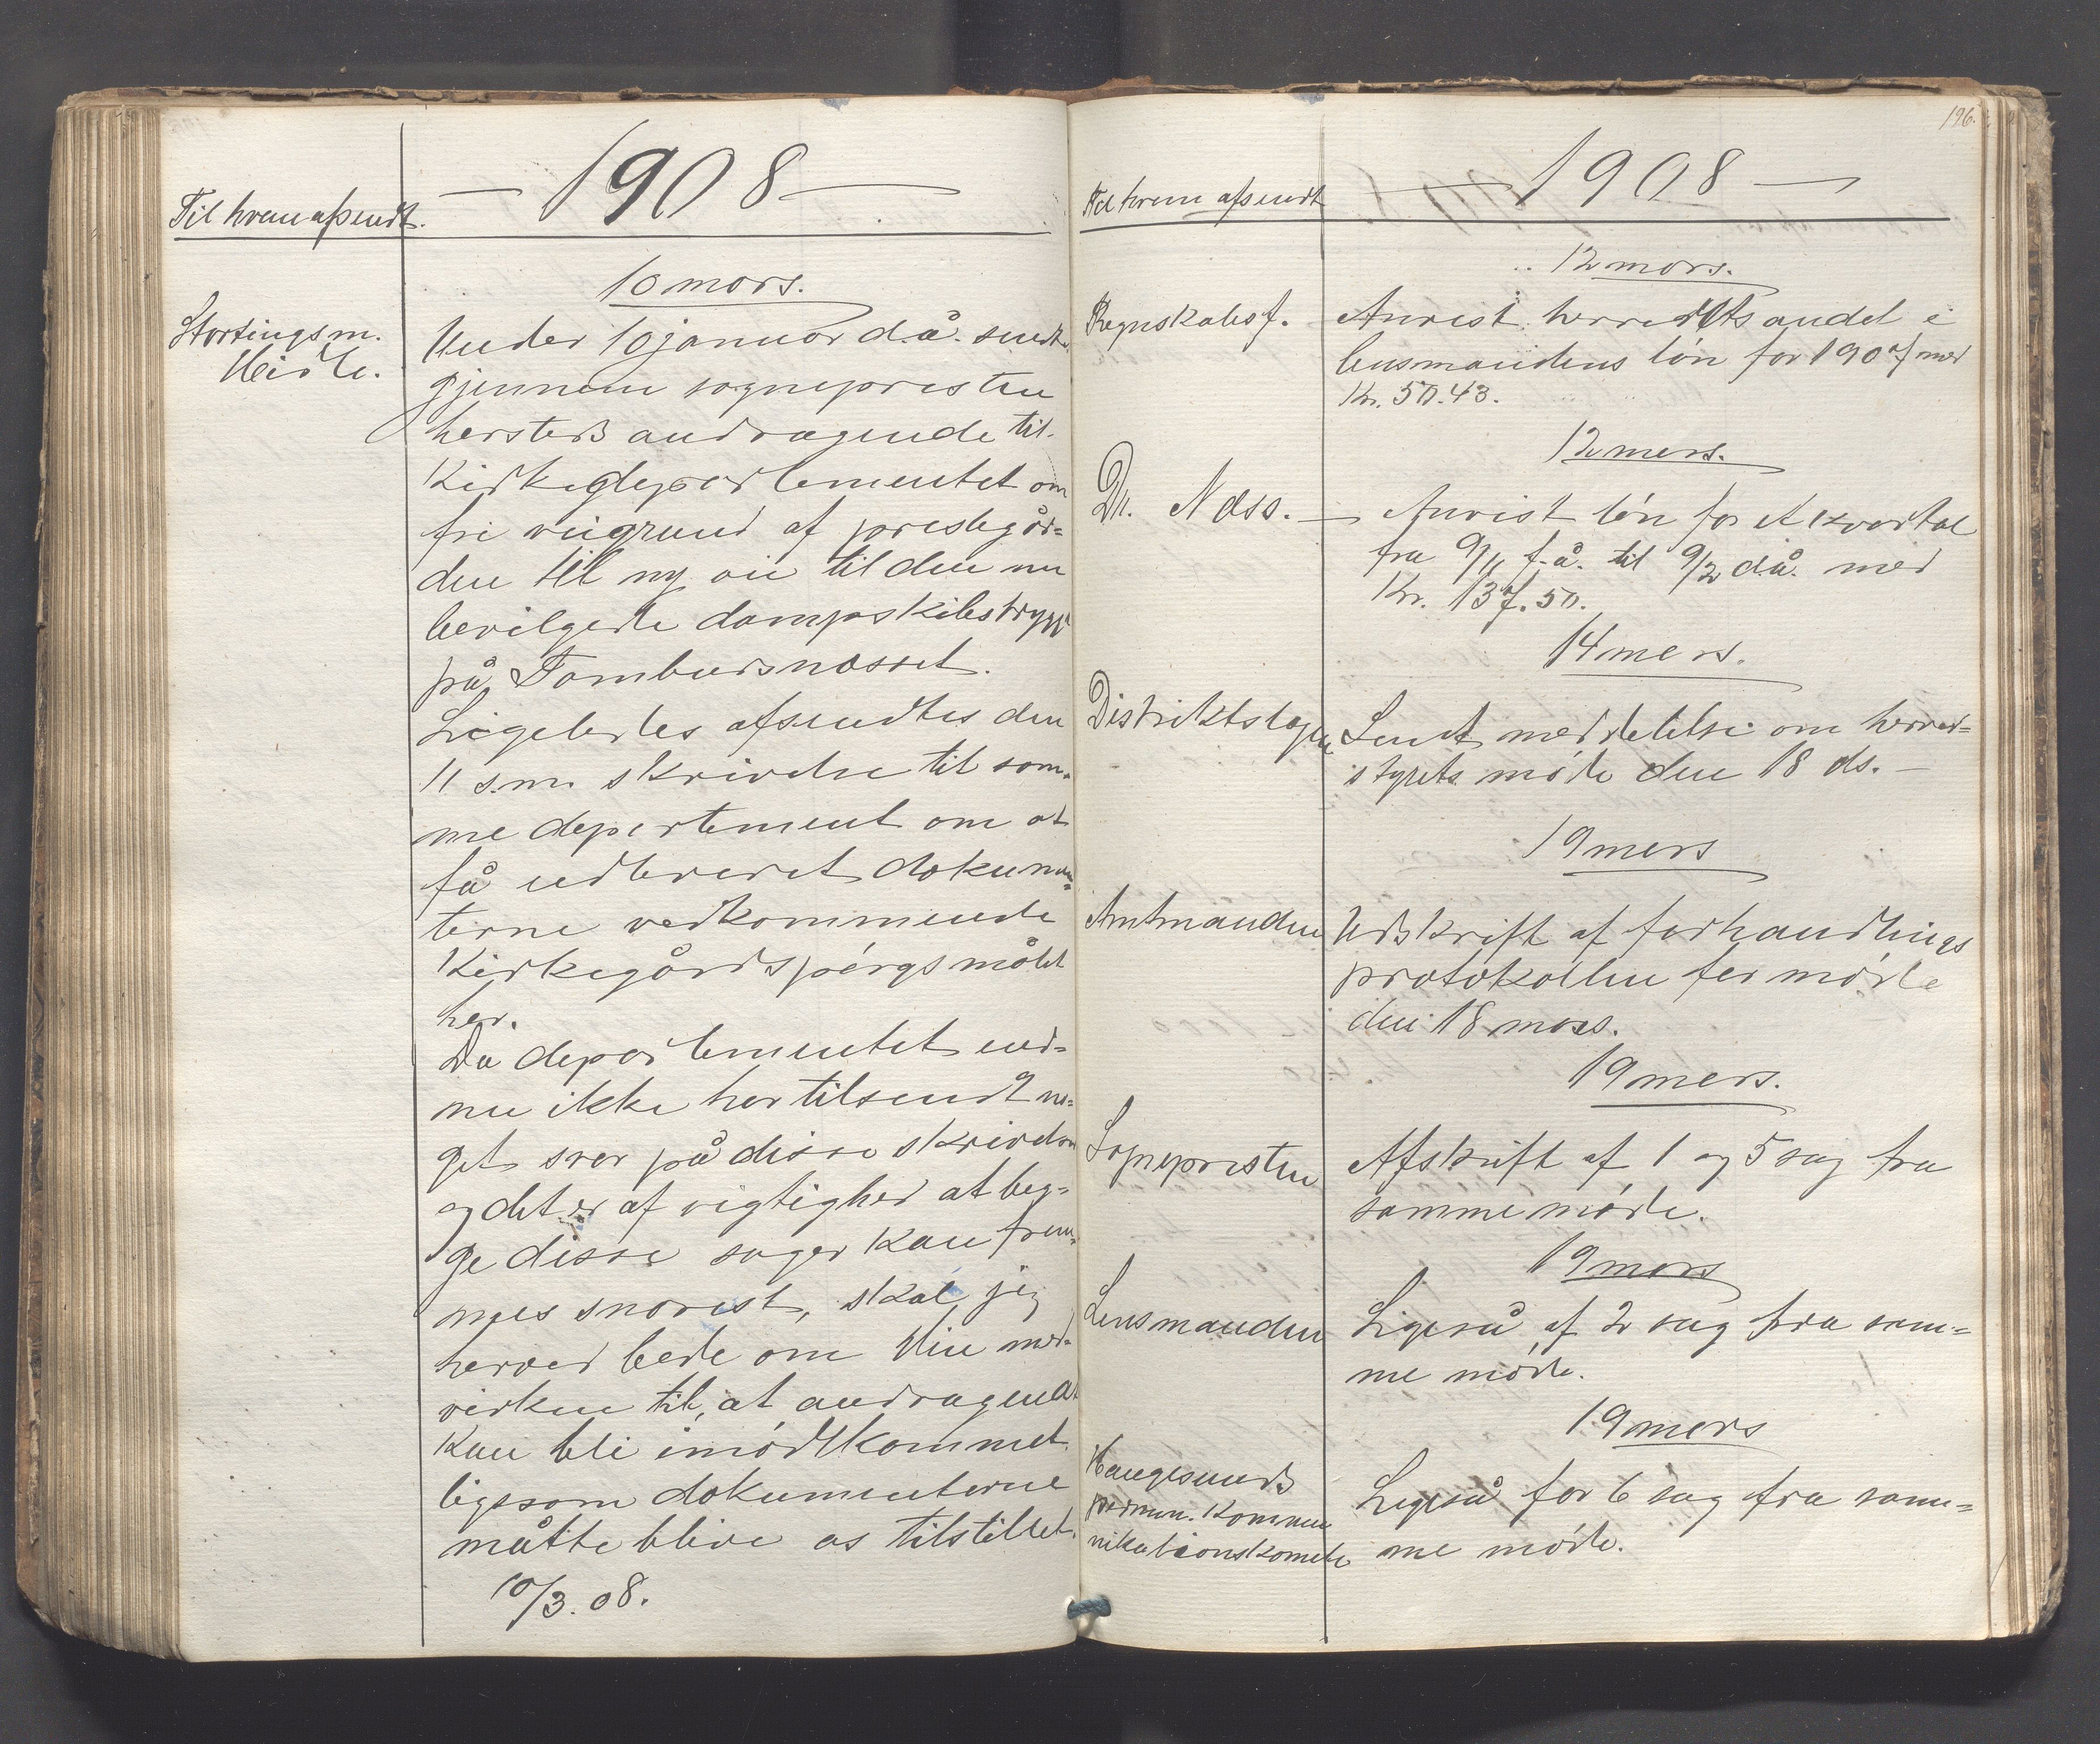 1908
Til hvem afsendt.
10 mars.
Stortingsm.
Under 10 januar d.å. sendtes
gjennem sognepresten
herstedß andragende til
Kirkedepartementet om
fri veigrund af prestegår=
den til ny vei til den nu
bevilgede dampskibsbrygge
på Tombudsnesset.
Ligeledes afsendtes den
11 s.m. skrivelse til sam=
me departement om at
få udleveret dokumen=
terne vedkommende
Kirkegårdspørgsmålet
her.
Da departementet end=
nu ikke har tilsendt no=
get svar på disse skrivelser
og det er af vigtighed at beg=
ge disse sager kan frem=
mes snarest, skal jeg
herved bede om Din med=
virken til, at andragendet
kan bli imødekommet
ligesom dokumenterne
måtte blive os tilstillet.
10/3.08.
196.
1908
Til hvem afsendt
12 mars.
Regnskabsf.
Anvist herredets andel i
lensmandens løn for 1907 med
Kr. 50.43.
12 mars.
Dr. Næss.
Anvist løn for et kvartal
fra 9/11 f.å. til 9/2 d.å. med
Kr. 137.50.
14 mars.
Distriktslægen
Sendt meddelelse om herred=
styrets møde den 18 ds. —
19 mars
Amtmanden
Udskrift af forhandlings
protokollen for møde
den 18 mars.
19 mars.
Sognepresten
Afskrift af 1 og 5 sag fra
samme møde.
19 mars
Lensmanden
Ligeså af 2 sag fra sam=
me møde.
19 mars
Haugesunds
perman. Kommu
nikationskomite
Ligeså for 6 sag fra sam=
me møde.